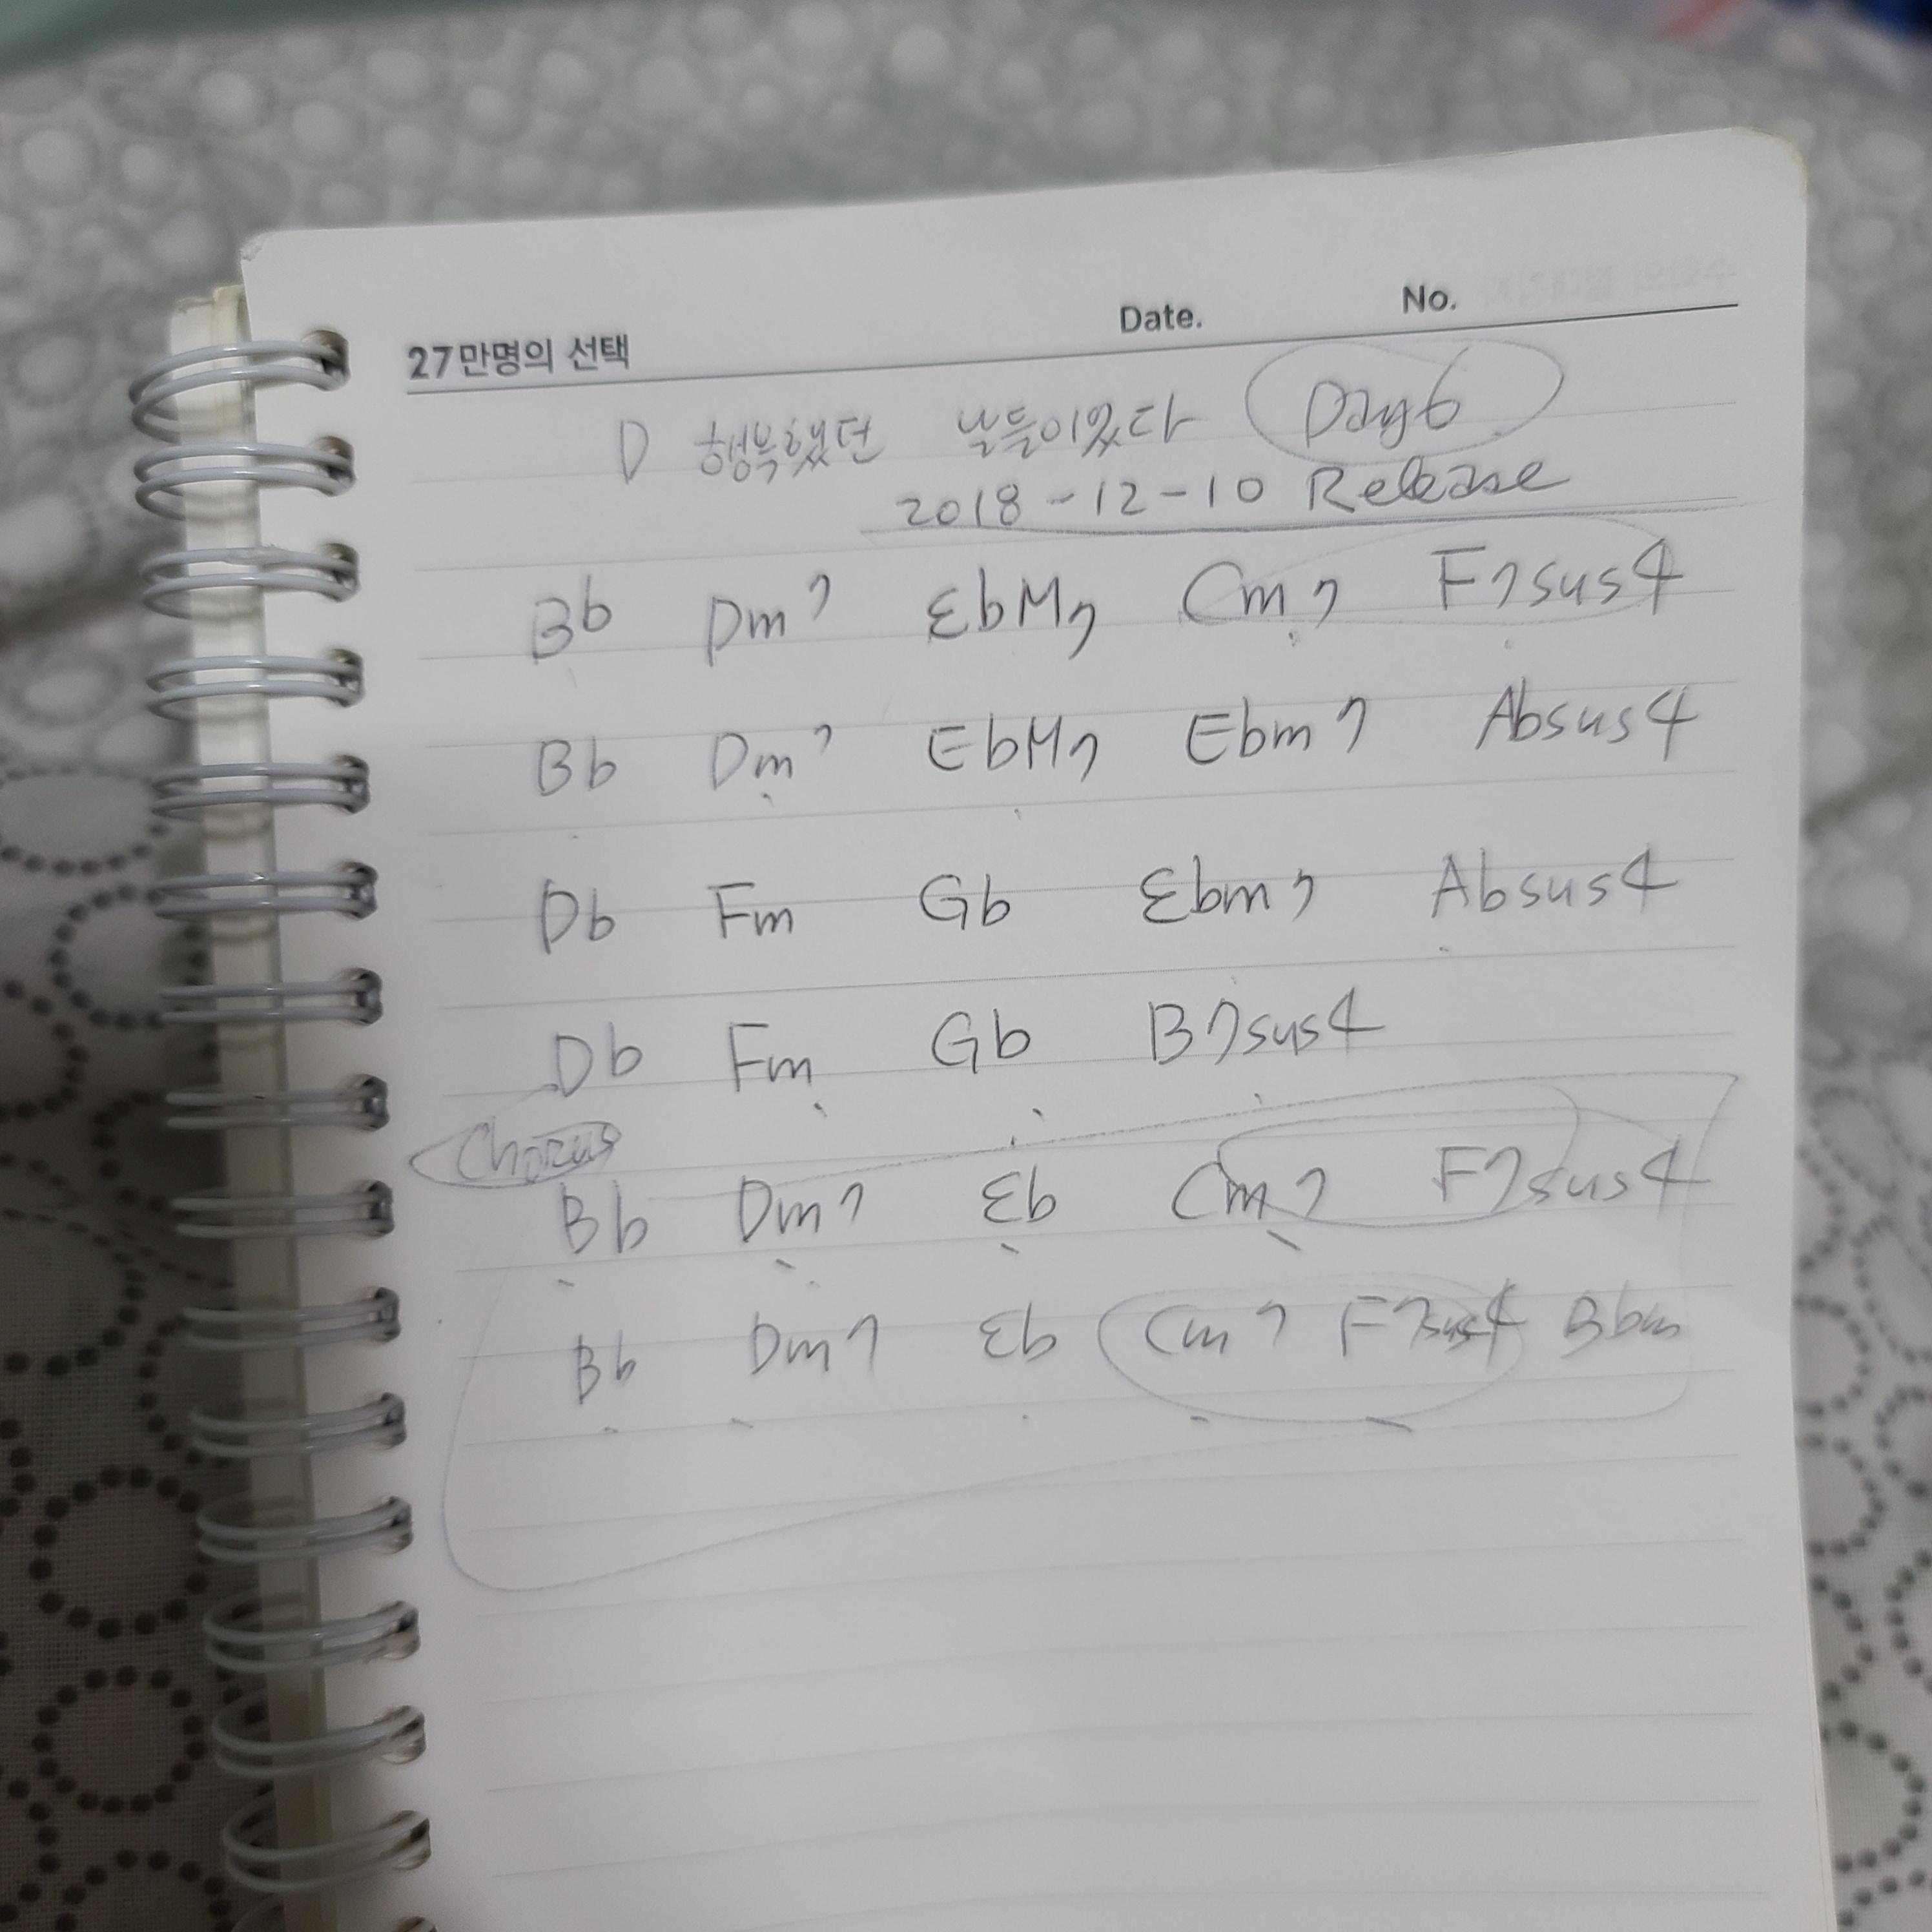 27만명의 선택 Date. No.
D 행복했던 날들이었다 Day6
2018-12-10 Release
Bb Dm7 EbM7 Cm7 F7sus4
Bb Dm7 EbM7 Ebm7 Absus4
Db Fm Gb Ebm7 Absus4
Db Fm Gb B7sus4
Chorus
Bb Dm7 Eb Cm7 F7sus4
Bb Dm7 Eb Cm7 F7sus4 Bbm